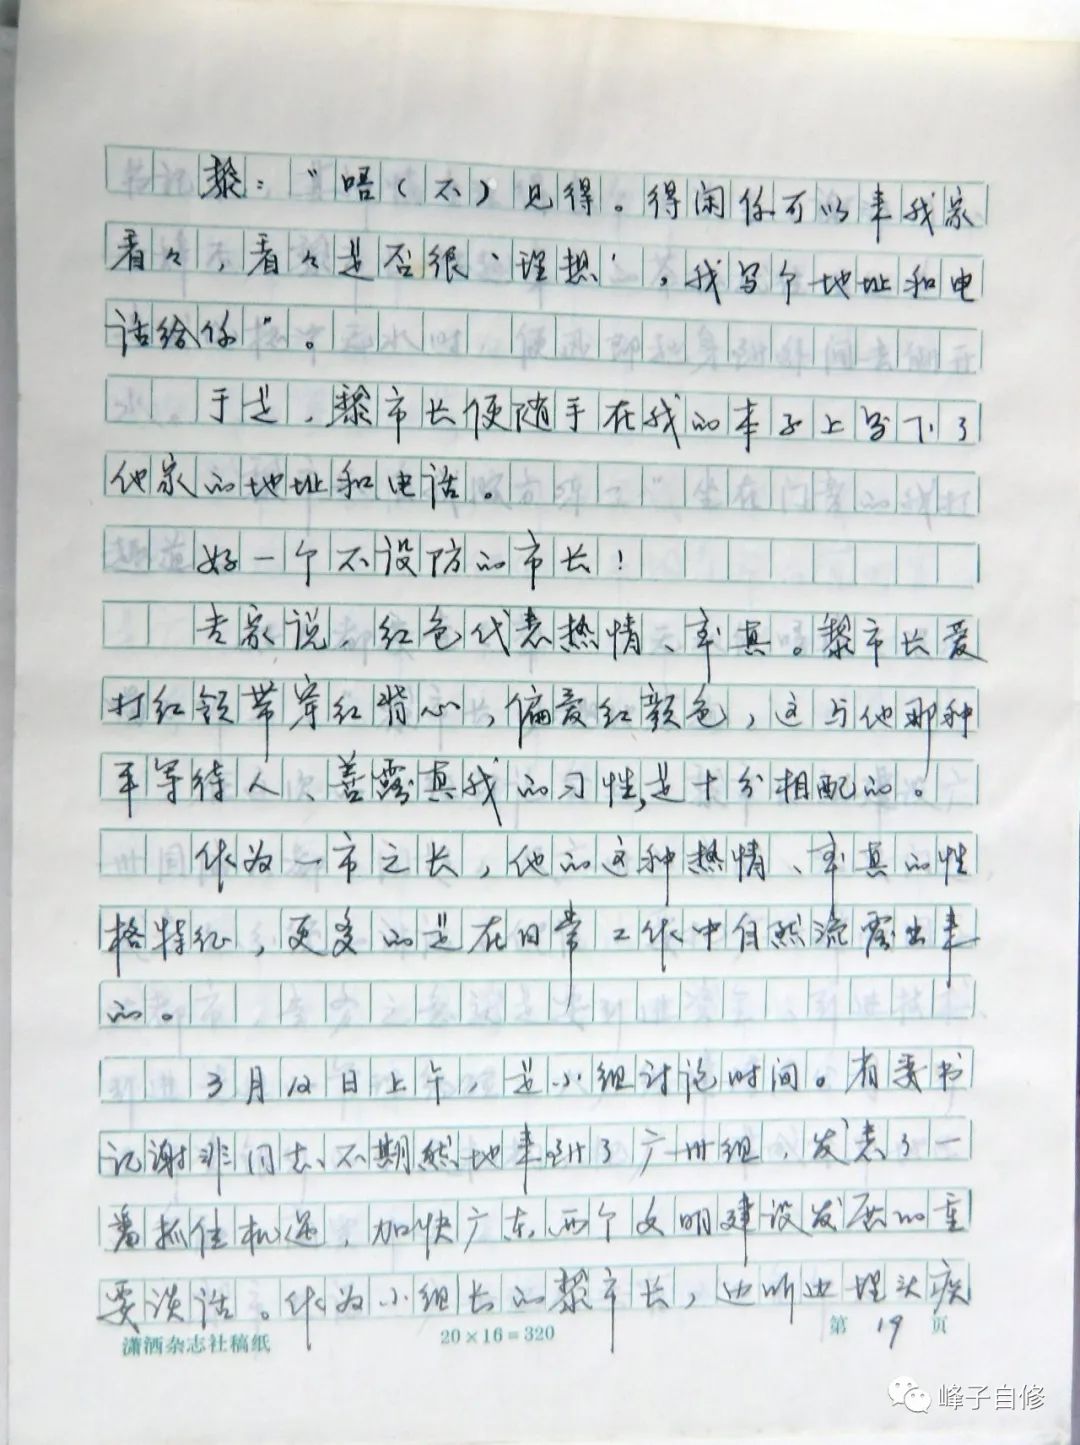 黎："唔（不）见得。得闲你可以来我家
看々，看々是否很'理想'，我写个地址和电
话给你"。
于是，黎市长便随手在我的本子上写下了
他家的地址和电话。
好一个不设防的市长！
专家说，红色代表热情、率真。黎市长爱
打红领带穿红背心，偏爱红颜色，这与他那种
平等待人、善露真我的习性，是十分相配的。
作为一市之长，他的这种热情、率真的性
格特征，更多的是在日常工作中自然流露出来
的。
3月12日上午，是小组讨论时间。省委书
记谢非同志不期然地来到了广州组，发表了一
番抓住机遇，加快广东两个文明建设发展的重
要谈话。作为小组长的黎市长，边听边埋头疾
潇洒杂志社稿纸 20×16=320 第19页
峰子自修